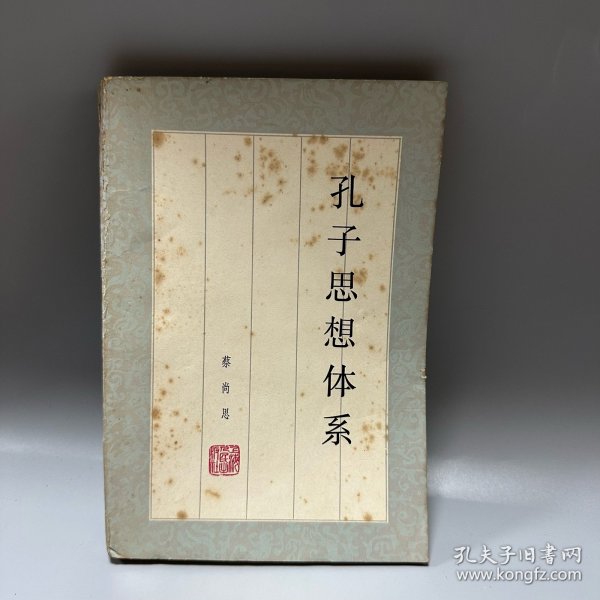 孔子思想体系
蔡尚思
孔夫子旧书网
www.kongfz.com